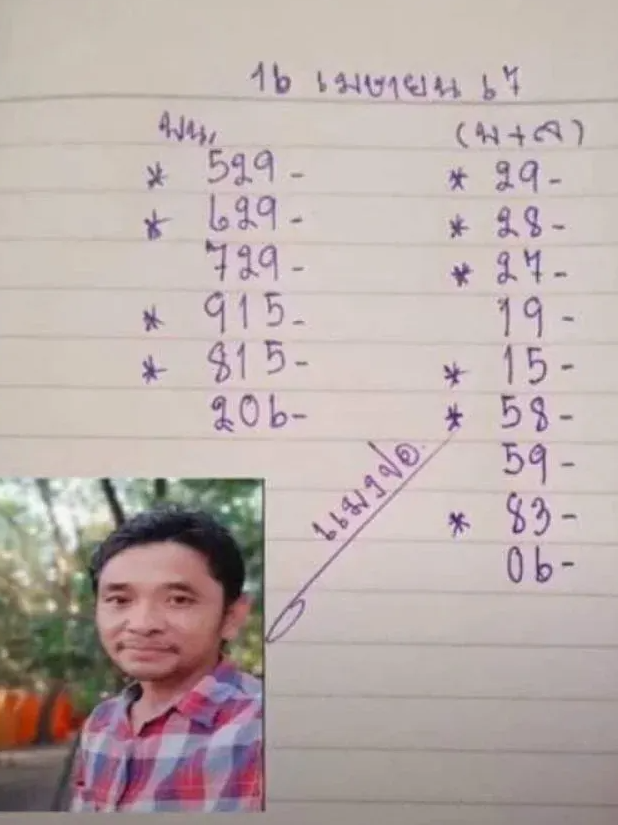 16 เมษายน 67
บน,
* 529-
* 629-
729-
* 915-
* 815-
206-
(บ+ล)
* 29-
* 28-
* 27-
19-
* 15-
* 58-
59-
* 83-
06-
แมงปอ.